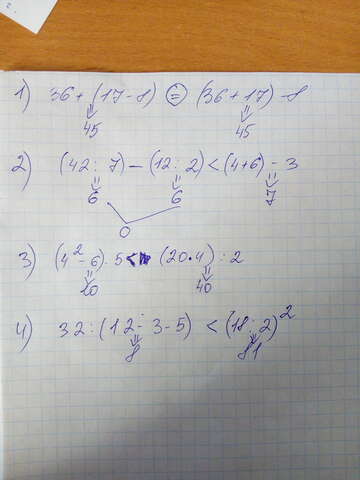 1) 36 + (17 - 8) = (36 + 17) - 8
45 45
2) (42 : 7) - (12 : 2) < (4 + 6) - 3
6 6 7
0
3) (4² - 6) · 5 < (20 · 4) : 2
20 40
4) 32 : (12 : 3 - 5) < (18 : 2)²
8 81